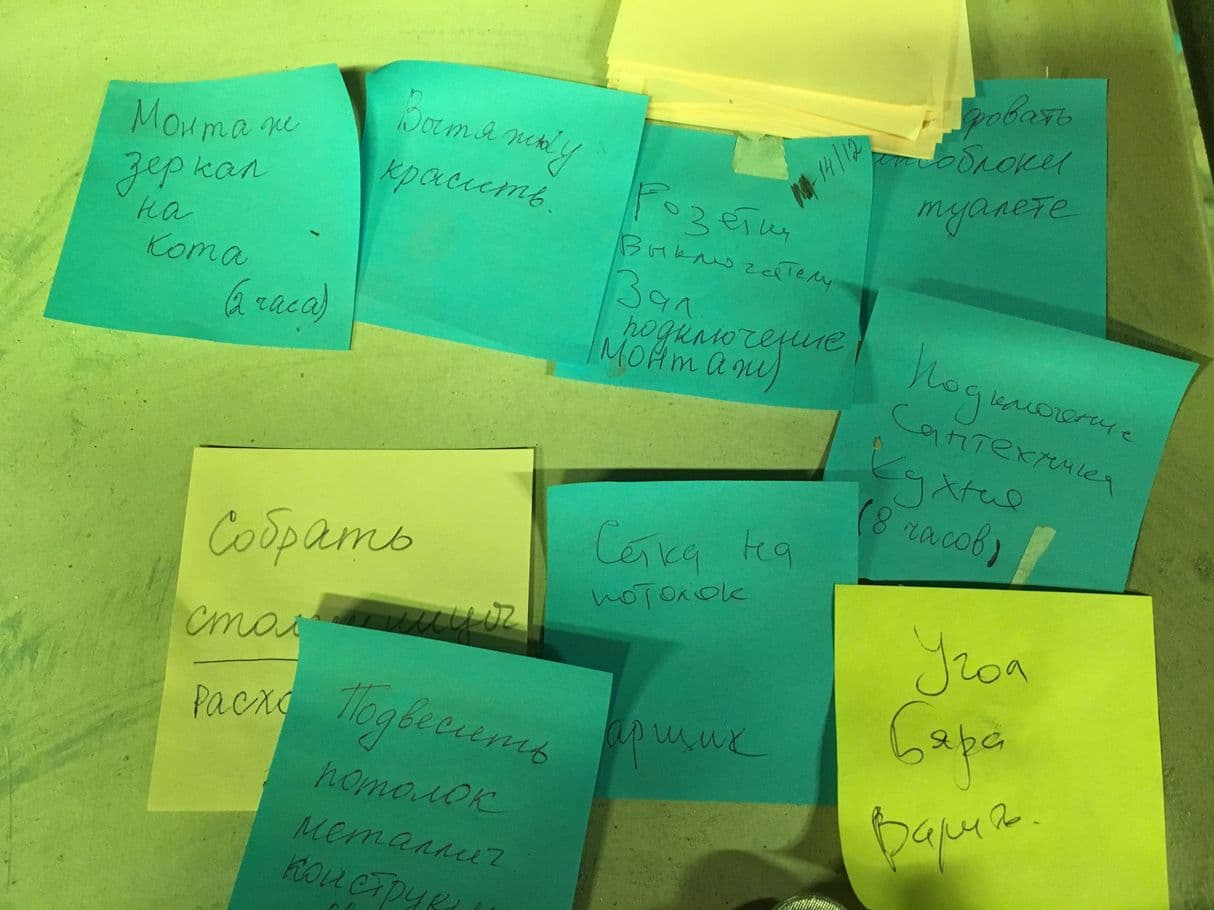 Монтаж
зеркал
на
кота
(2 часа)
Вытяжку
красить.
14/12
Розетки
выключатели
Зал
подключение
монтаж)
фовать
блоки
туалете
Подключение
Сантехника
Кухня
(8 часов)
Собрать
стол
расхо
Сетка на
потолок
арщик
Подвесить
потолок
металлич
конструкц
Угол
Бара
Варить.